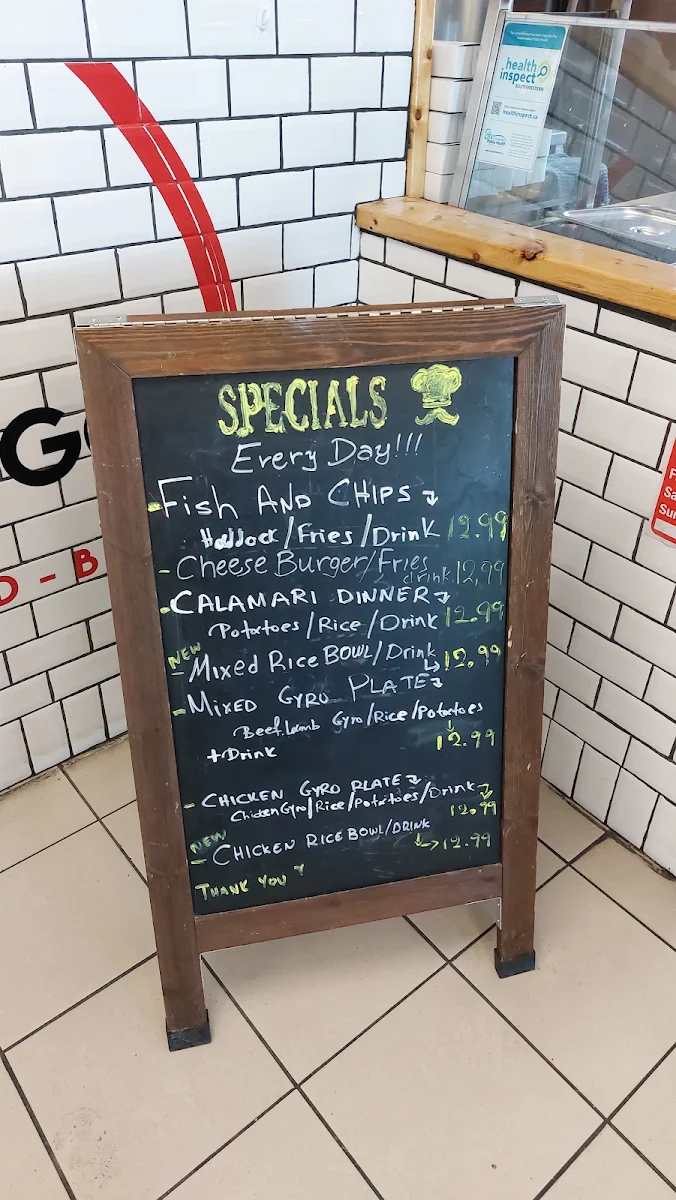 the latest food premises inspection from Southwestern Public Health
health
inspect
SOUTHWESTERN
healthinspect.ca
Public Health
GO
D - B
SPECIALS
Every Day!!!
- Fish AND CHIPS
Haddock/Fries/Drink 12.99
- Cheese Burger/Fries
drink 12,99
- CALAMARI DINNER
Potatoes/Rice/Drink 12.99
NEW
- Mixed Rice BOWL/Drink
12.99
- MIXED GYRO PLATE
Beef.Lamb Gyro/Rice/Potatoes
+Drink 12.99
- CHICKEN GYRO PLATE
Chicken Gyro/Rice/Potatoes/Drink
12.99
NEW
- CHICKEN RICE BOWL/DRINK
12.99
THANK YOU
F
Sa
Sun